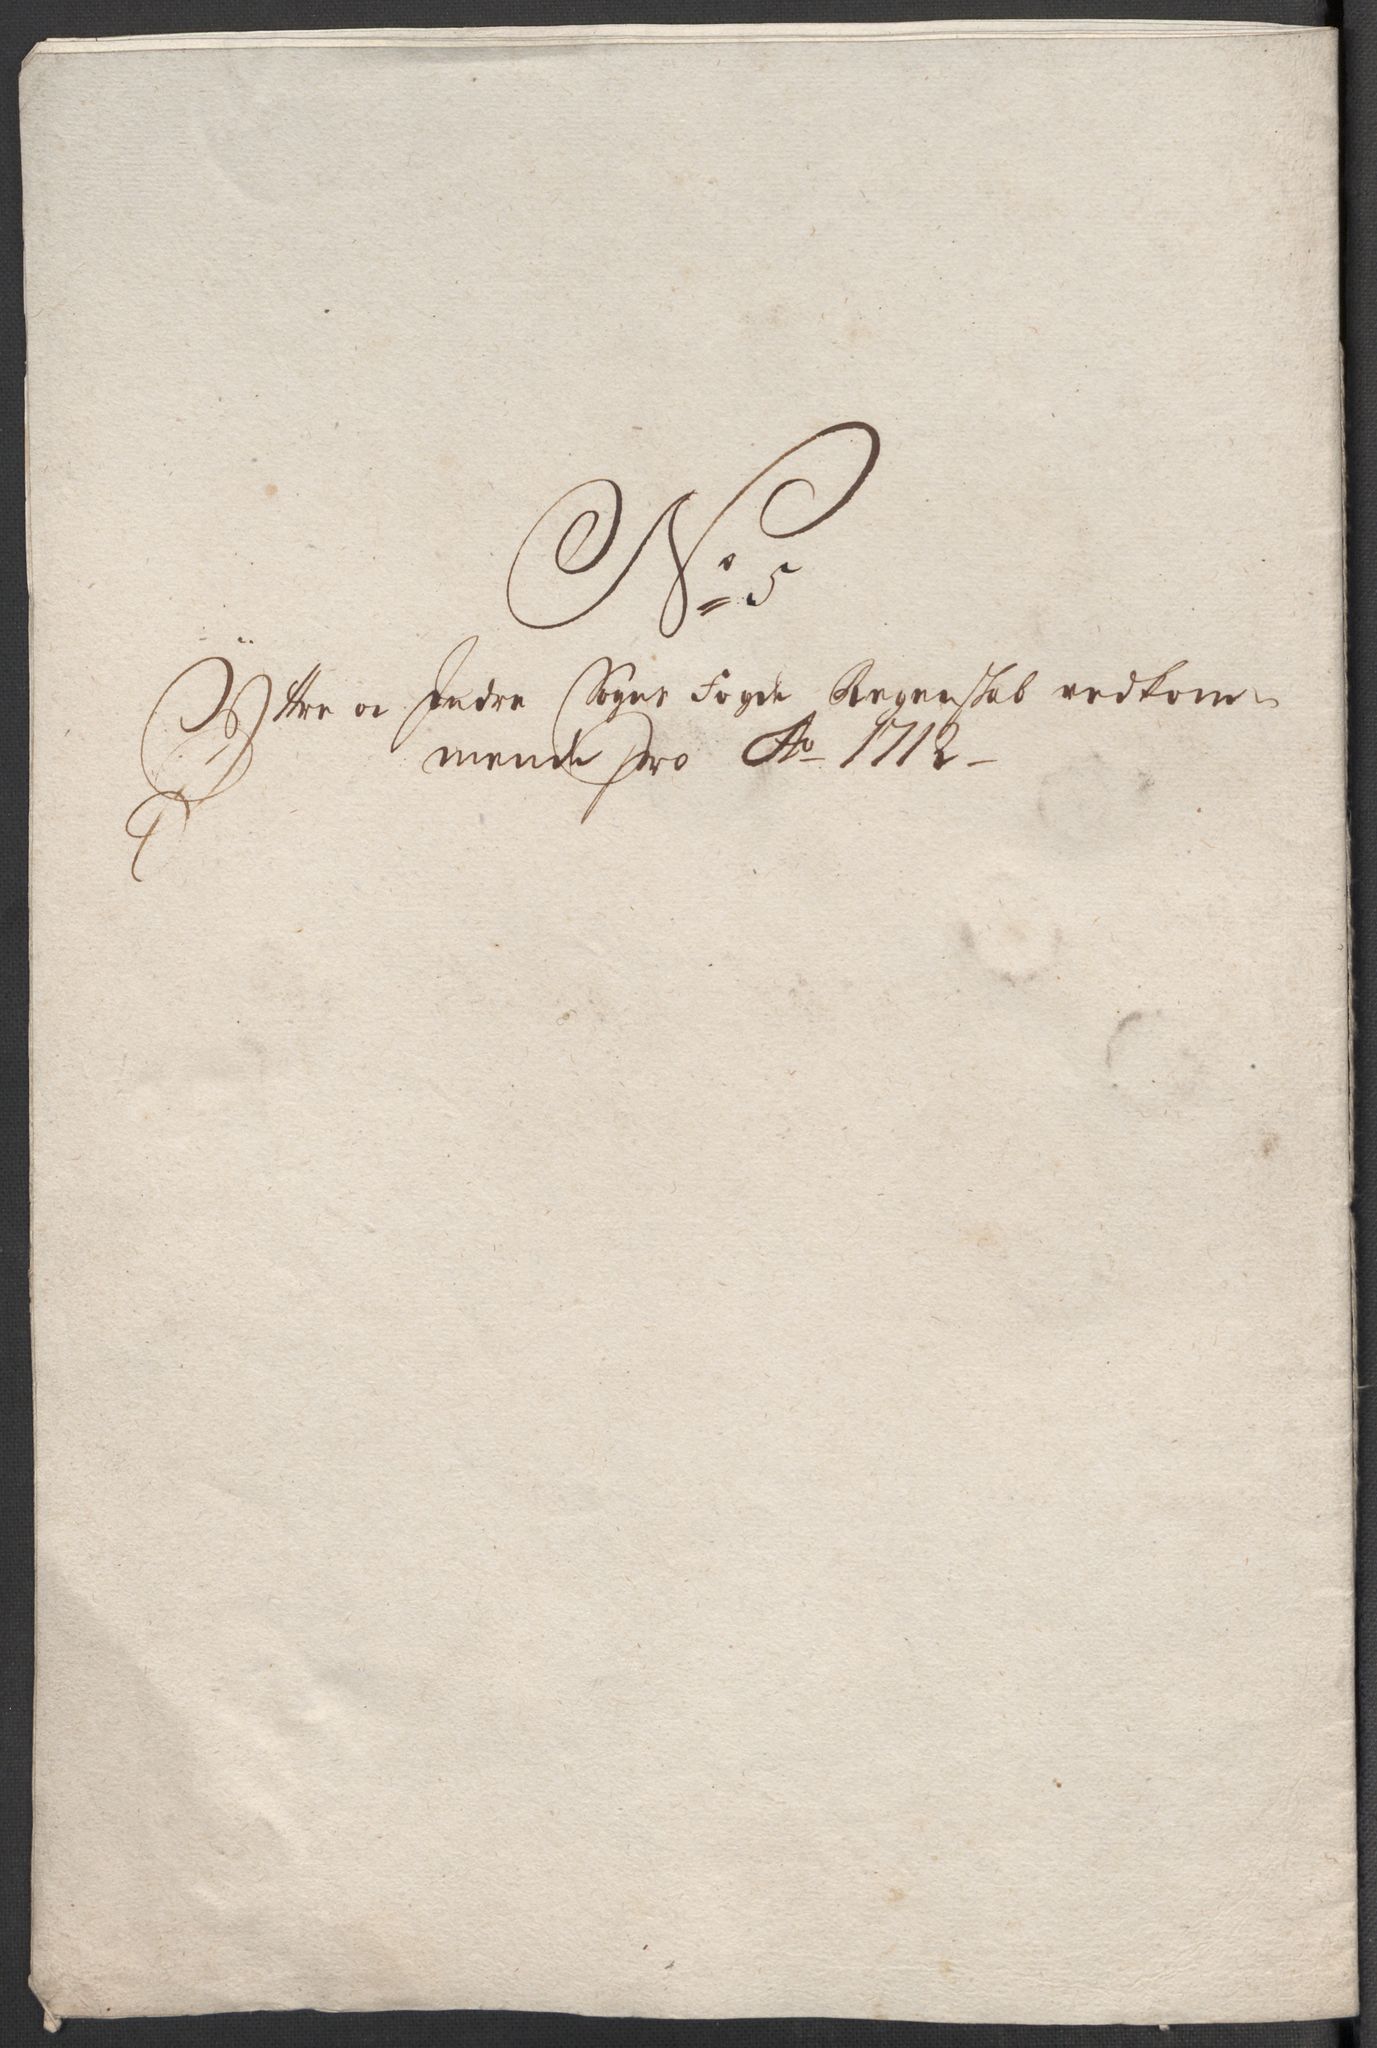 No 5
Ÿttre oc Indre Sogns Fogde Regenskab vedkom-
mende pro Ao 1712